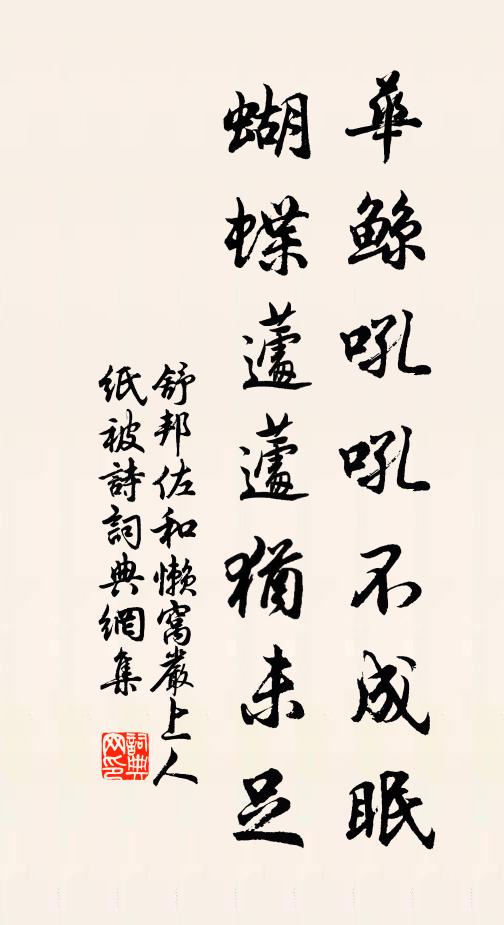 華鯨吼吼不成眠
蝴蝶蘧蘧猶未足
舒邦佐和懶窩嚴上人
紙被詩詞典網集
詞典网印